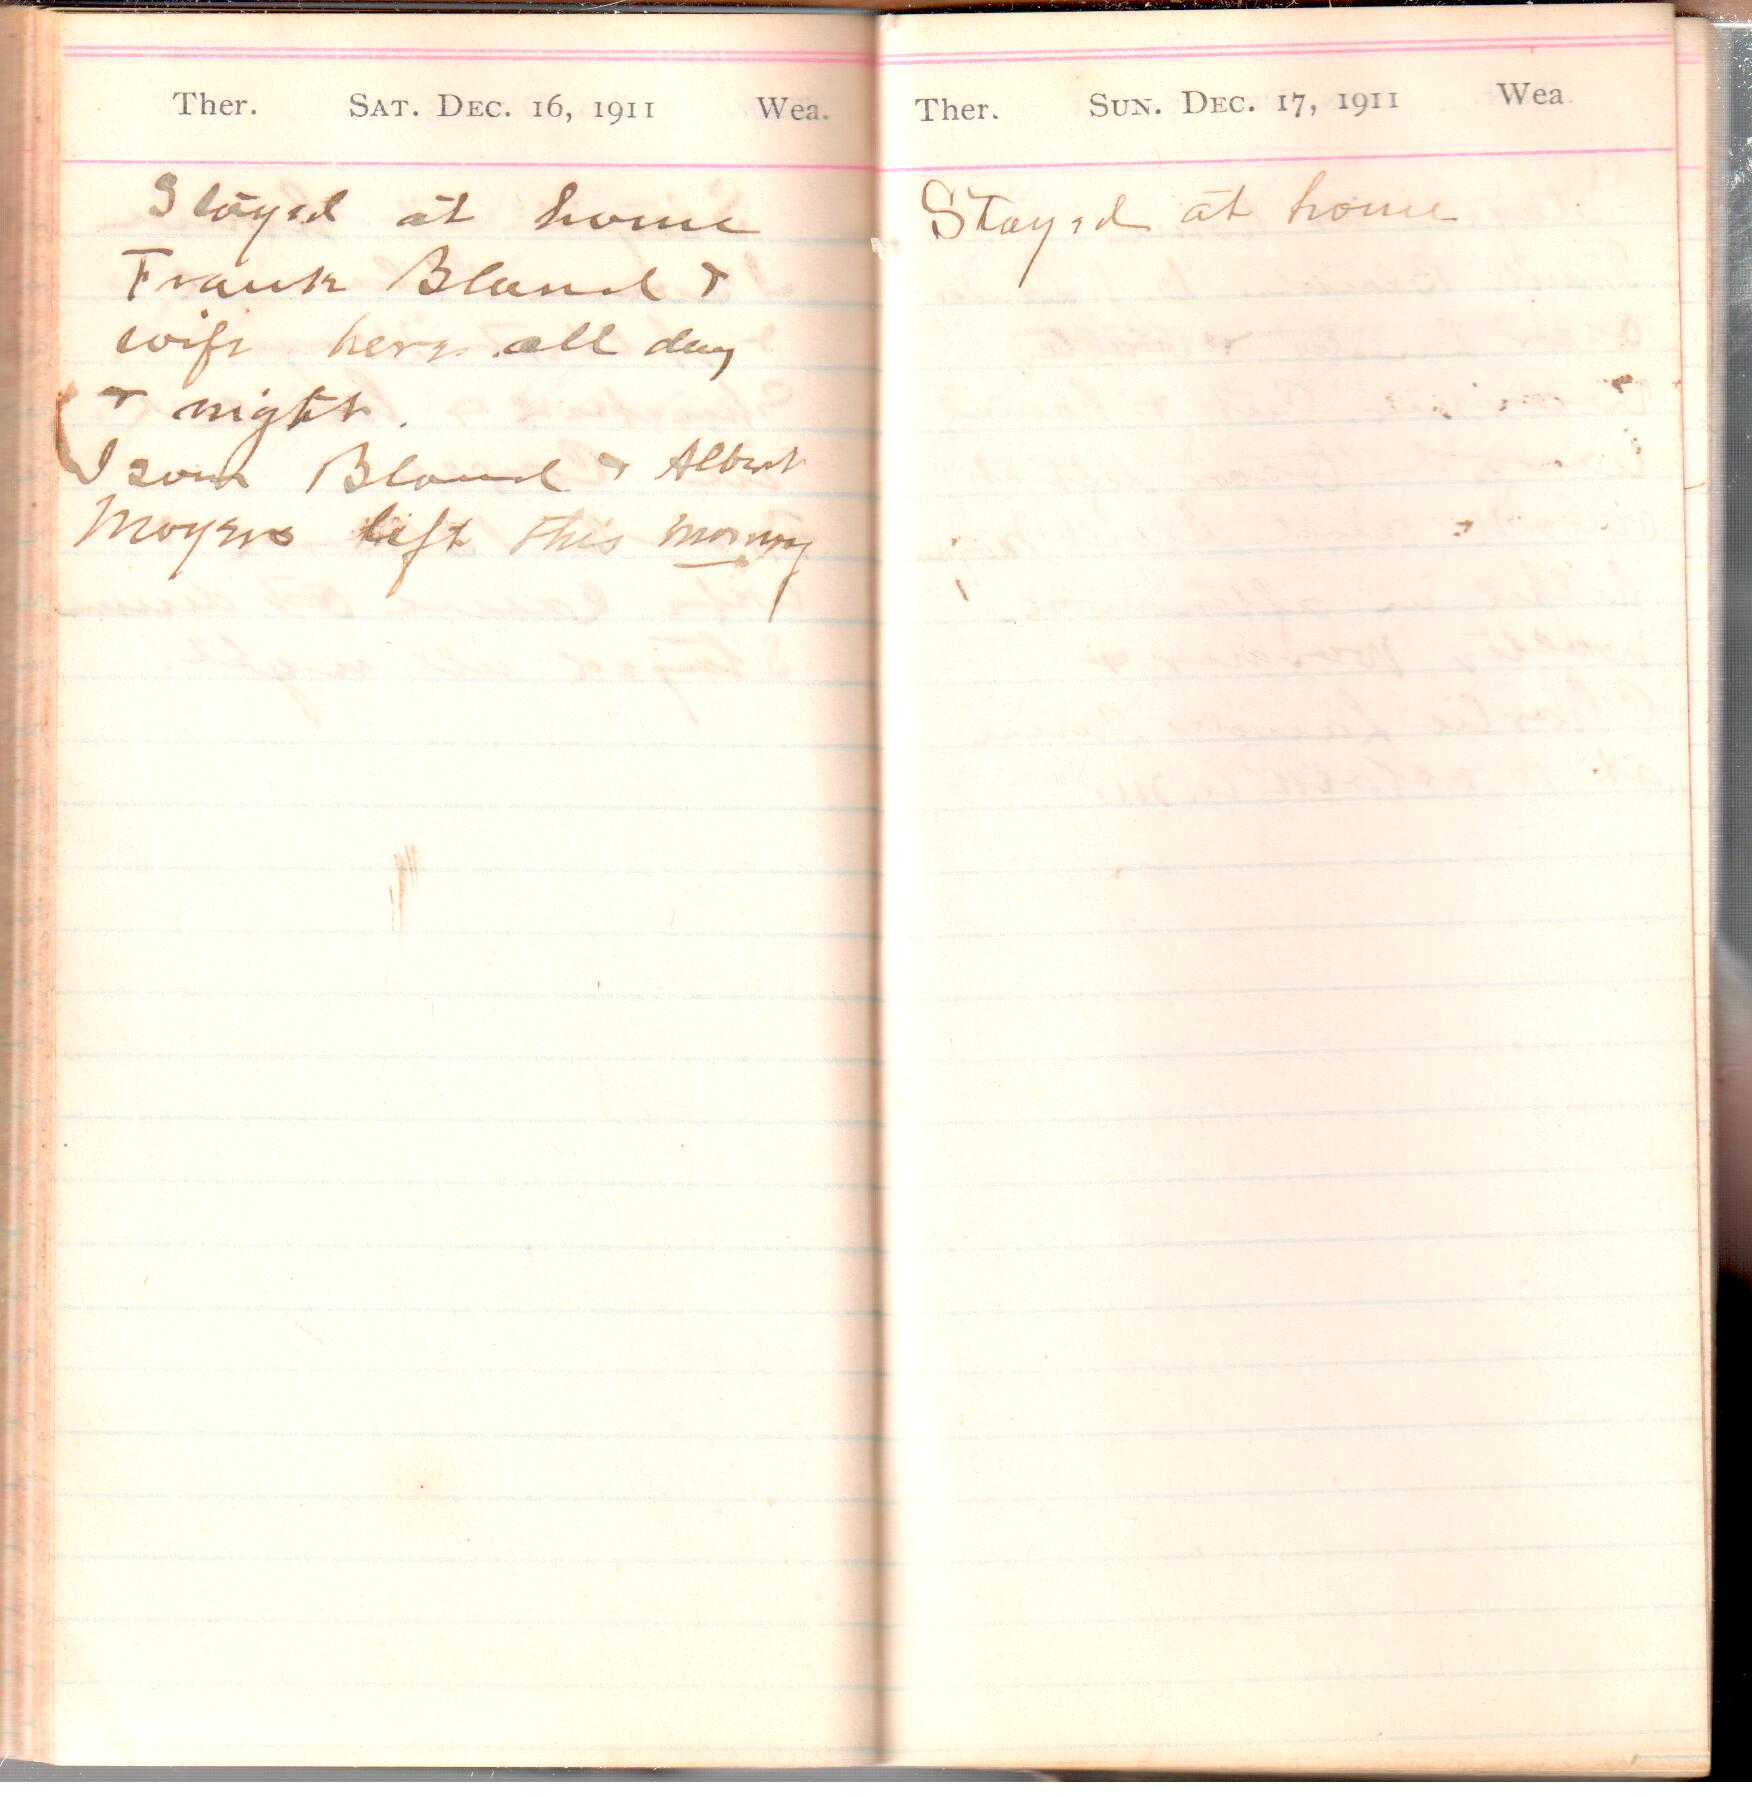 Ther. Sat. Dec. 16, 1911 Wea.
Stayed at home
Frank Bland &
wife here all day
& night.
Isom Bland & Albert
Moyers left this morning
Ther. Sun. Dec. 17, 1911 Wea.
Stayed at home